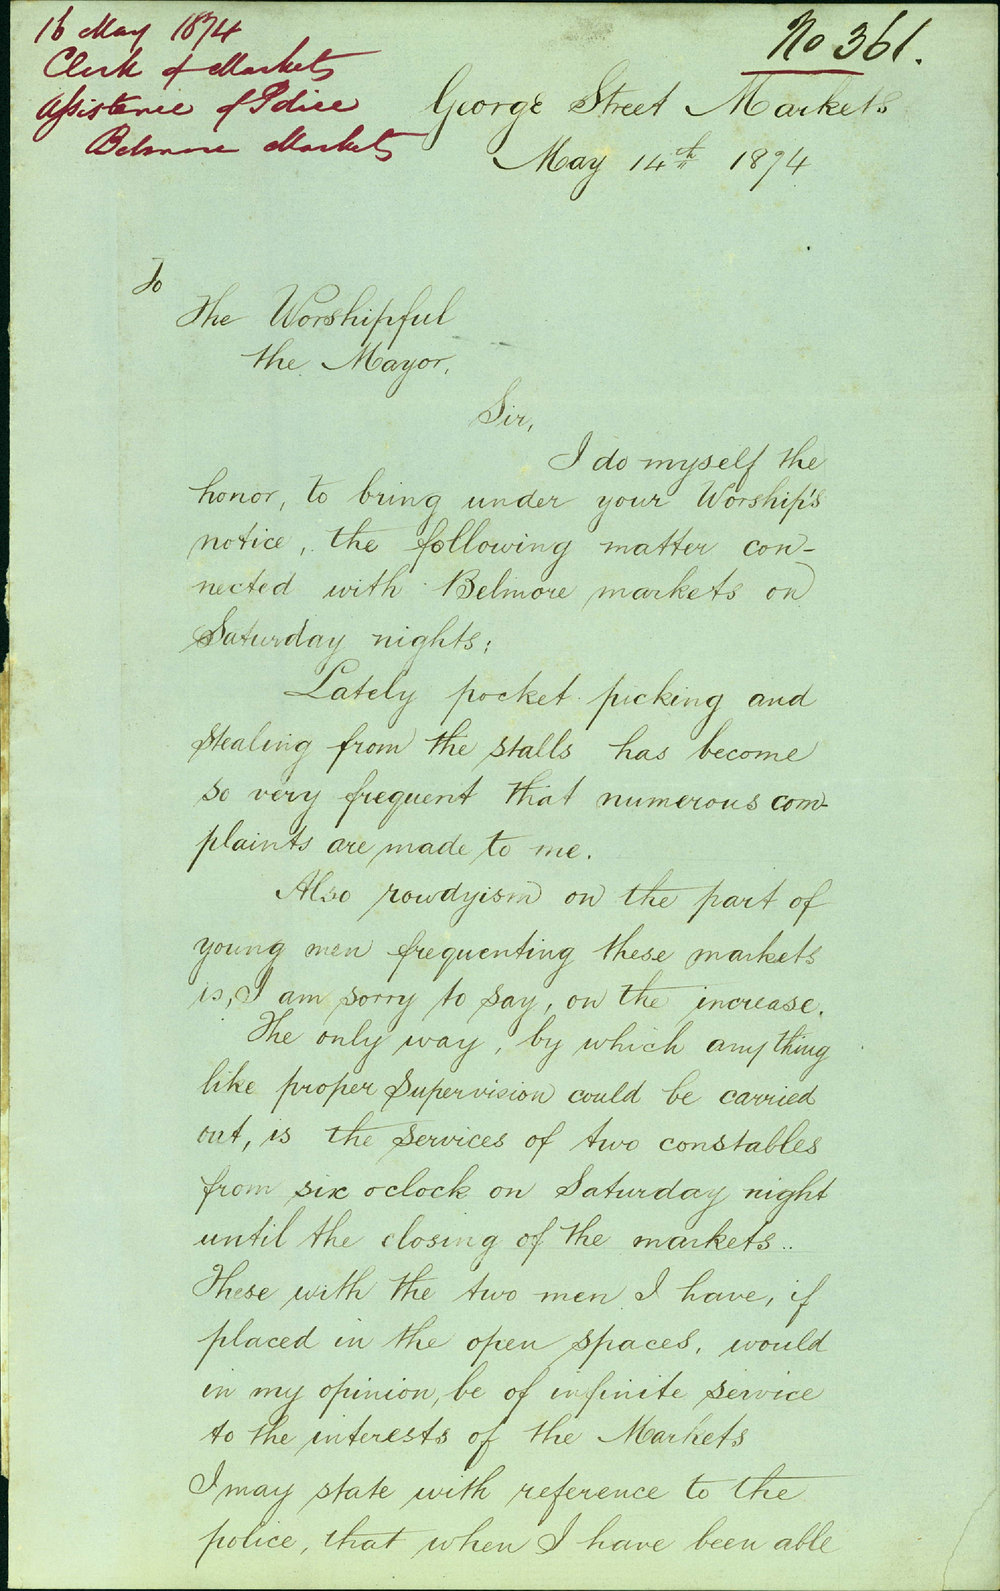 16 May 1874
Clerk of Markets
Assistance of Police
Belmore Markets
No 361.
George Street Markets
May 14th 1874
To
The Worshipful
the Mayor,
Sir,
I do myself the
honor, to bring under your Worship's
notice, the following matter con-
nected with Belmore markets on
Saturday nights;
Lately pocket picking and
stealing from the stalls has become
so very frequent that numerous com-
plaints are made to me.
Also rowdyism on the part of
young men frequenting these markets
is, I am sorry to say, on the increase.
The only way, by which any thing
like proper supervision could be carried
out, is the services of two constables
from six oclock on Saturday night
until the closing of the markets..
These with the two men I have, if
placed in the open spaces, would
in my opinion, be of infinite service
to the interests of the Markets
I may state with reference to the
police, that when I have been able